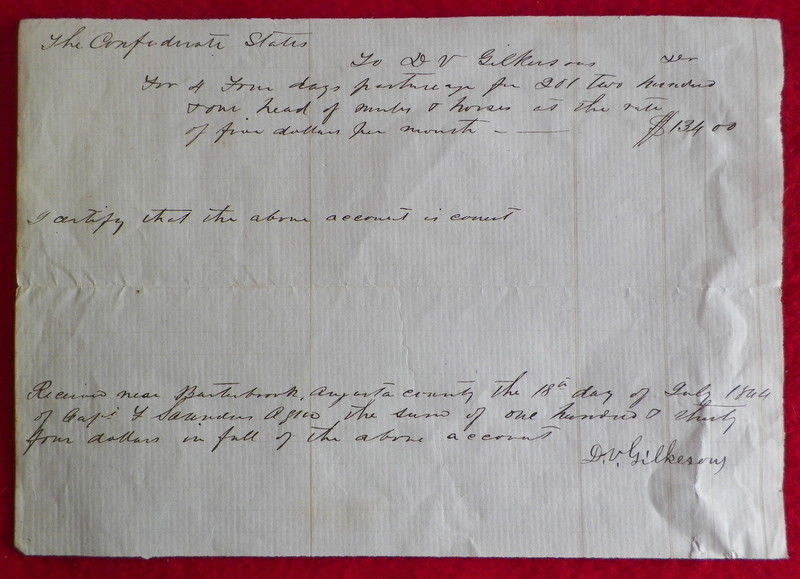 The Confederate States
To D V Gilkesons Dr
For 4 Four days pasturage for 201 two hundred
& one head of mules & horses at the rate
of five dollars per month - — $134 00
I certify that the above account is correct
Received near Barterbrook, Augusta county the 18th day of July 1864
of Capt F Saunders AQM the sum of one hundred & thirty
four dollars in full of the above account
D.V. Gilkesons